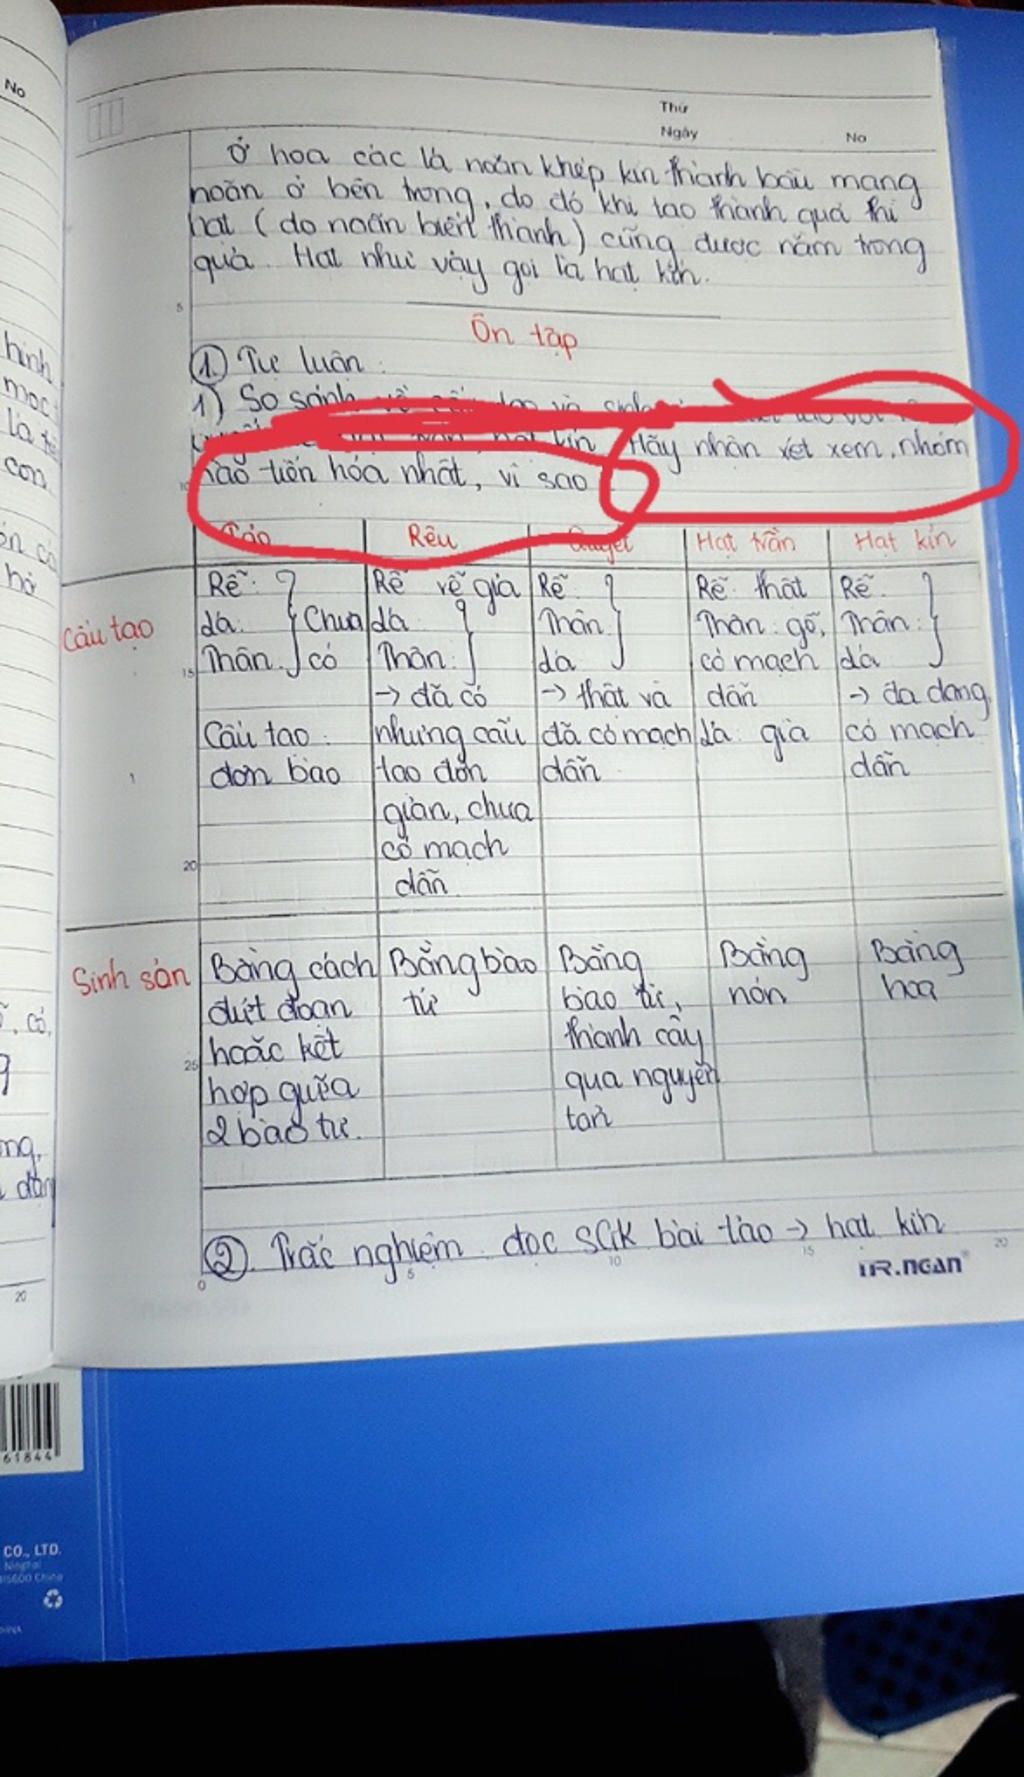 No
Thứ
Ngày
No
Ở hoa các lá noãn khép kín thành bầu mang
noãn ở bên trong, do đó khi tạo thành quả thì
hạt (do noãn biến thành) cũng được nằm trong
quả. Hạt như vậy gọi là hạt kín.
Ôn tập
① Tự luận:
1) So sánh về
hạt kín. Hãy nhận xét xem, nhóm
nào tiến hóa nhất, vì sao
Tảo Rêu Quyết Hạt trần Hạt kín
Cấu tạo
Rễ:
Lá: Chưa
Thân: có
Cấu tạo
đơn bào
Rễ rễ giả
Lá
Thân:
→ đã có
nhưng cấu
tạo đơn
giản, chưa
có mạch
dẫn
Rễ
Thân
Lá
→ thật và
đã có mạch
dẫn
Rễ thật
Thân: gỗ,
có mạch
dẫn
Lá: già
Rễ
Thân:
Lá
→ đa dạng
có mạch
dẫn
Sinh sản
Bằng cách
đứt đoạn
hoặc kết
hợp giữa
2 bào tử.
Bằng bào
tử
Bằng
bào tử,
thành cây
qua nguyên
tản
Bằng
nón
Bằng
hoa
② Trắc nghiệm đọc SGK bài tảo → hạt kín
0 5 10 15 20
MR.NGAN
5
10
15
20
25
hình
mọc
là
con
hở
có,
ng,
20
61844
CO., LTD.
Ninghai
315600 China